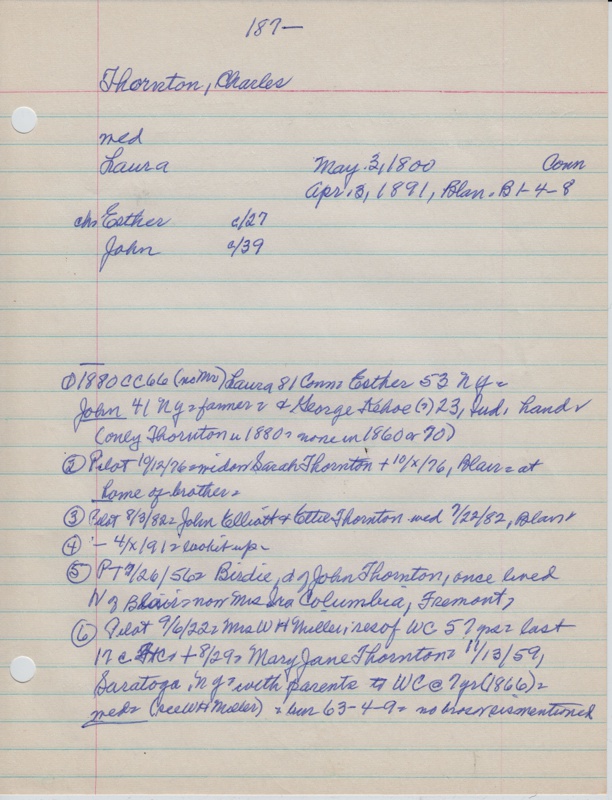 187—
Thornton, Charles
med
Laura May 3, 1800 Conn
Apr 3, 1891, Blair B1-4-8
chs Esther c/27
John c/39
① 1880 CC66 (no Mr) Laura 81 Conn = Esther 53 NY =
John 41 NY = farmer = & George Kehoe (?) 23, Ind, hand
(only Thornton in 1880 = none in 1860 or 70)
② Pilot 10/12/76 = widow Sarah Thornton + 10/x/76, Blair = at
home of brother =
③ Pilot 8/3/82 = John Elliott & Ettie Thornton med 7/22/82, Blair
④ " 4/x/91 = look it up -
⑤ PT 9/26/56 = Birdie, d of John Thornton, once lived
N of Blair = now Mrs Ira Columbia, Fremont,
⑥ Pilot 9/6/22 = Mrs W H Miller, res of WC 57 yrs = last
17 c + 8/29 = Mary Jane Thornton = 11/13/59,
Saratoga, NY = with parents to WC @ 7 yr (1866) =
med = (see W H Miller) = bur 63-4-9 = no bros or sis mentioned